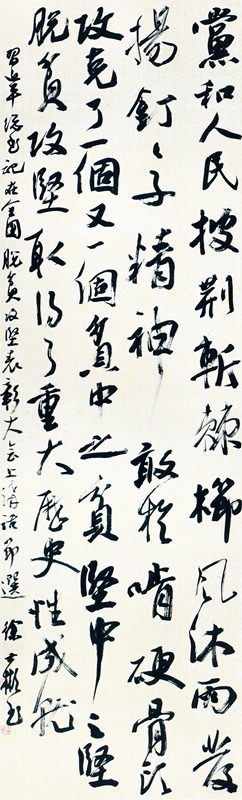 黨和人民披荆斬棘櫛風沐雨發
揚釘〻子精神敢於啃硬骨頭
攻克了一個又一個貧中之貧堅中之堅
脱貧攻堅取得了重大歷史性成就
習近平總書記在全國脱貧攻堅表彰大会上講話節選 徐